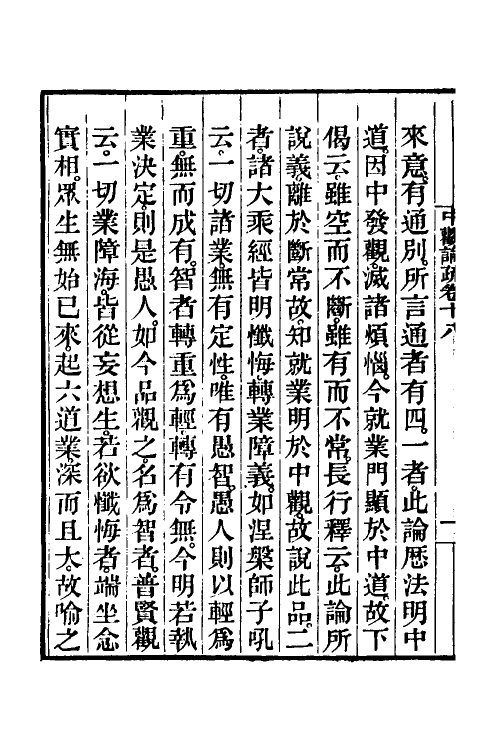 中觀論疏卷十八
一
來意。有通別。所言通者有四。一者。此論歷法明中
道。因中發觀。滅諸煩惱。今就業門顯於中道。故下
偈云。雖空而不斷。雖有而不常。長行釋云。此論所
說義。離於斷常故。知就業明於中觀。故說此品。二
者。諸大乘經皆明懺悔轉業障義。如涅槃師子吼
云。一切諸業。無有定性。唯有愚智。愚人則以輕爲
重。無而成有。智者轉重爲輕。轉有令無。今明若執
業決定。則是愚人。如今品觀之。名爲智者。普賢觀
云。一切業障海。皆從妄想生。若欲懺悔者。端坐念
實相。眾生無始已來。起六道業。深而且大。故喻之